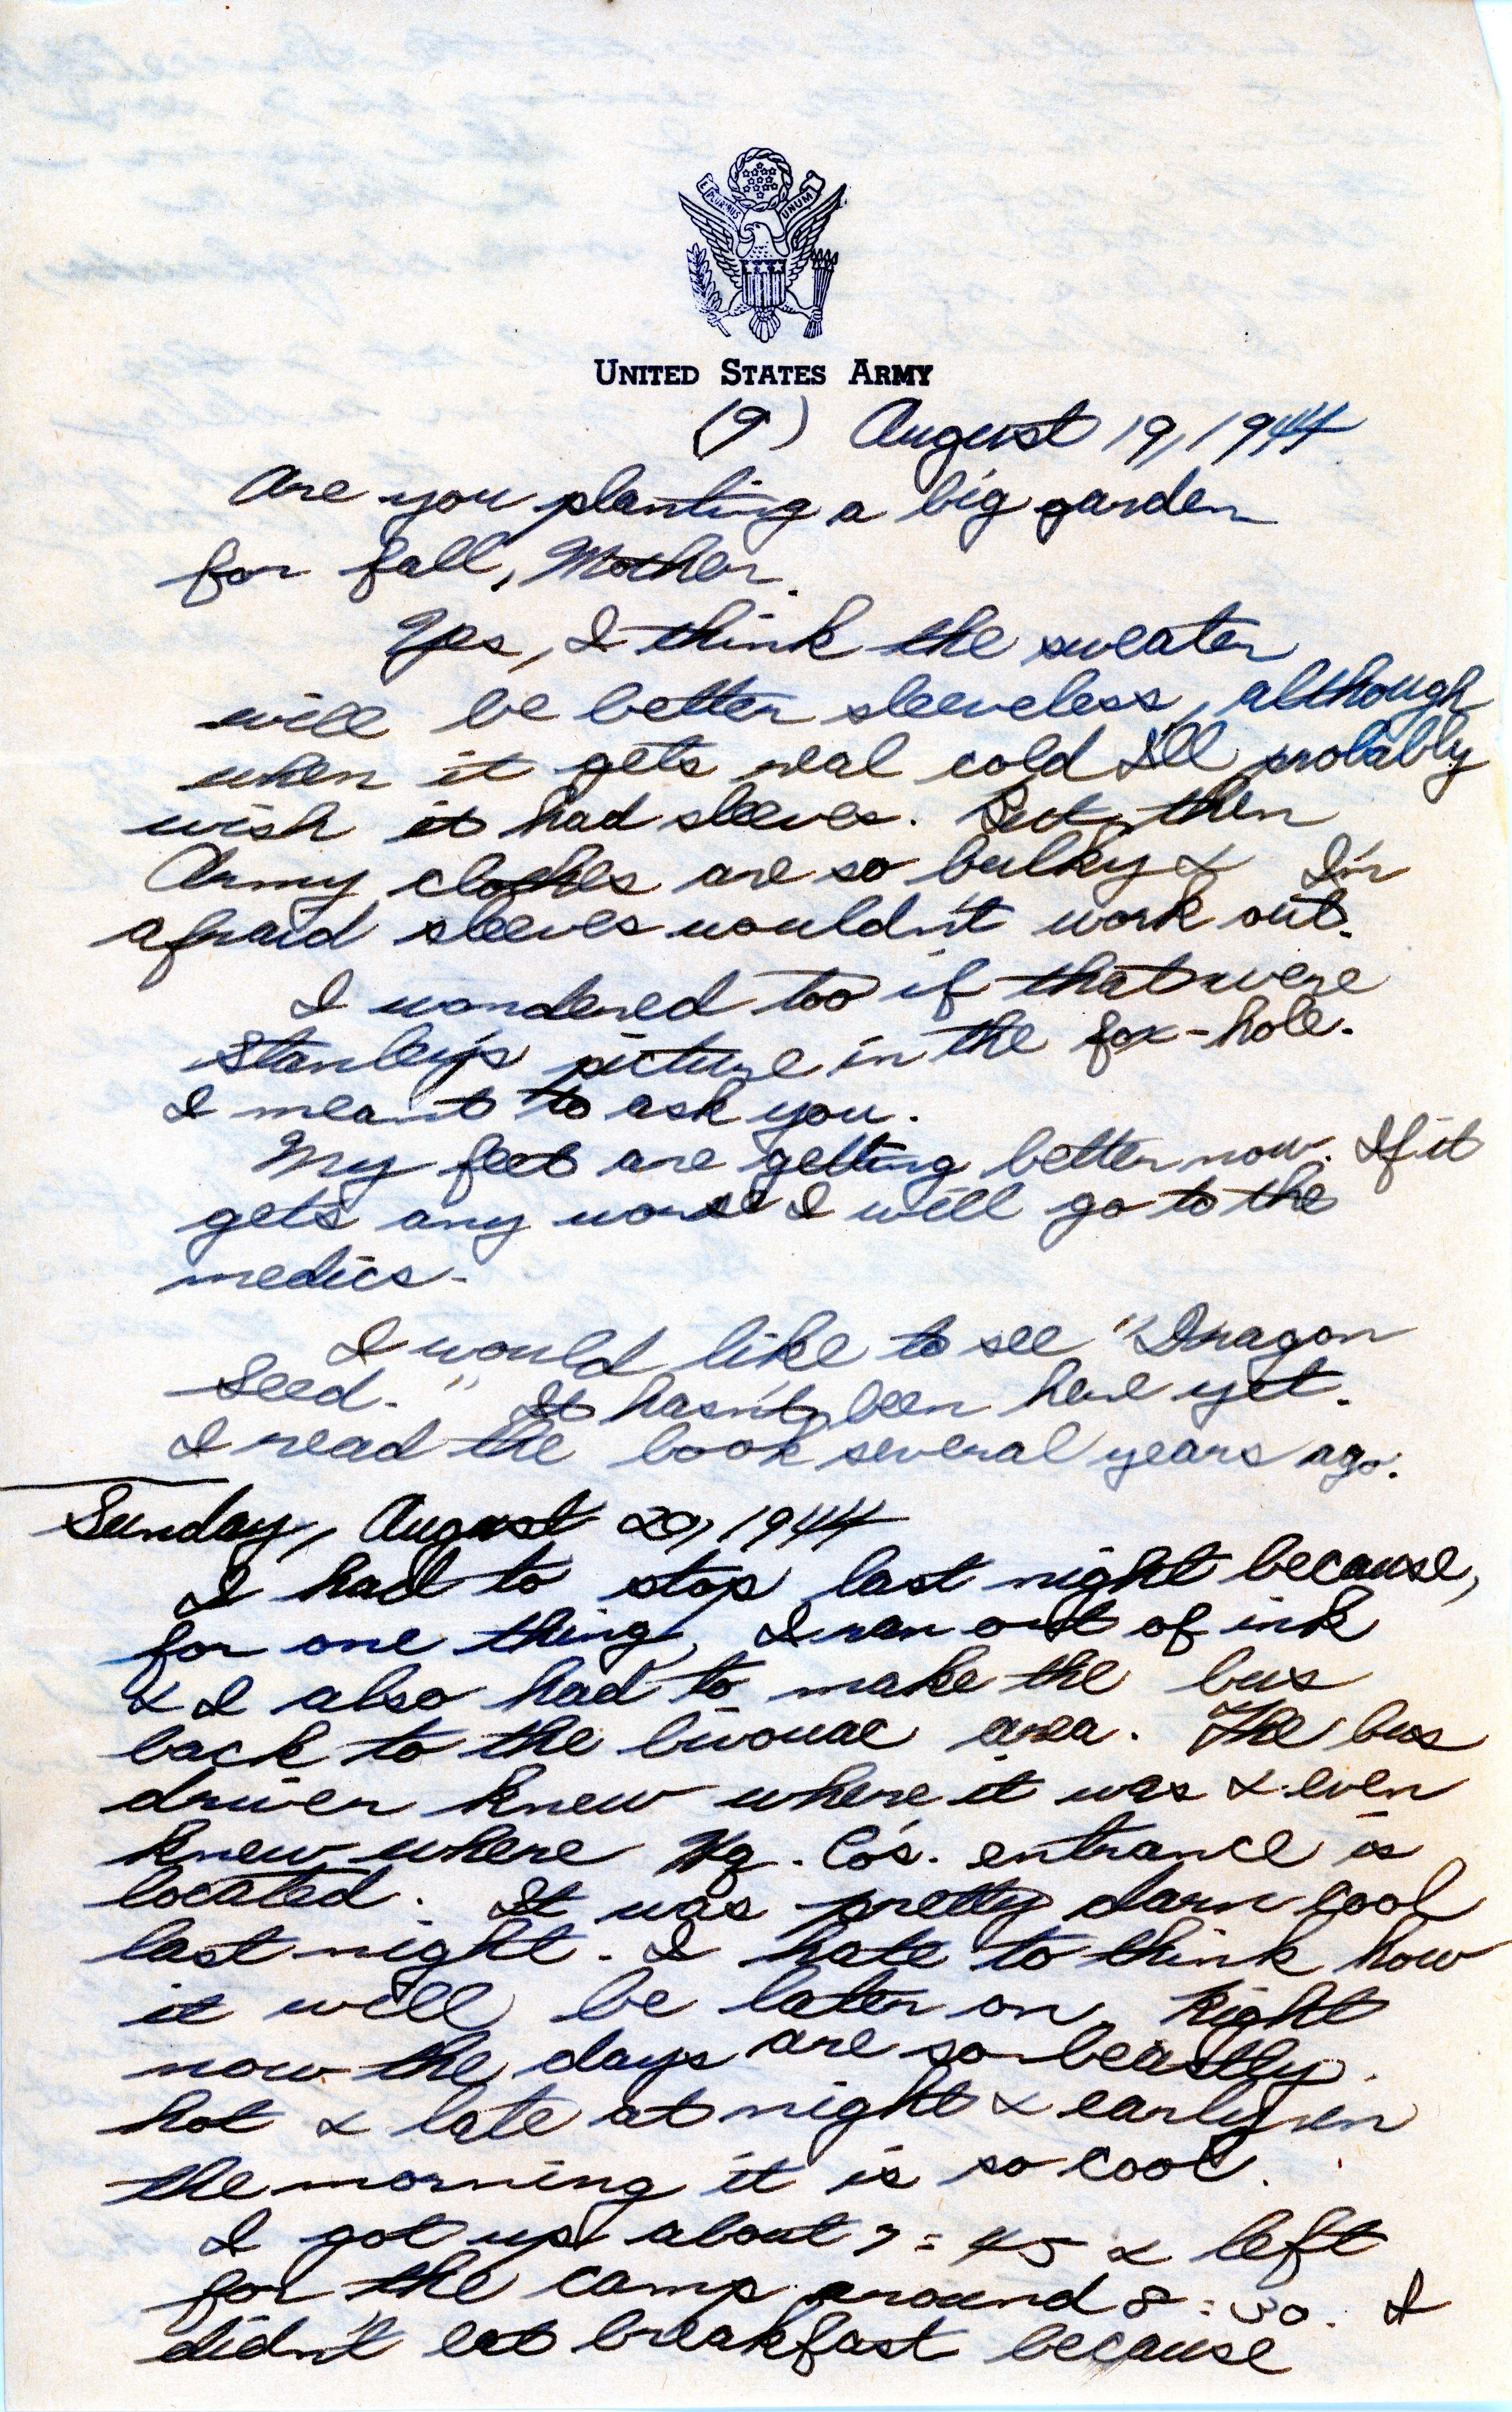 E PLURIBUS UNUM
UNITED STATES ARMY
(9) August 19, 1944
Are you planting a big garden
for fall, Mother.
Yes, I think the sweater
will be better sleeveless, although
when it gets real cold I'll probably
wish it had sleeves. But, then
Army clothes are so bulky & I'm
afraid sleeves wouldn't work out.
I wondered too if that were
Stanley's picture in the fox-hole.
I meant to ask you.
My feet are getting better now. If it
gets any worse I will go to the
medics.
I would like to see "Dragon
Seed." It hasn't been here yet.
I read the book several years ago.
Sunday, August 20, 1944
I had to stop last night because,
for one thing, I ran out of ink
& I also had to make the bus
back to the bivouac area. The bus
driver knew where it was & even
knew where Hq. Co's. entrance is
located. It was pretty darn cool
last night. I hate to think how
it will be later on. Right
now the days are so beastly
hot & late at night & early in
the morning it is so cool.
I got up about 7:45 & left
for the camp around 8:30. I
didn't eat breakfast because